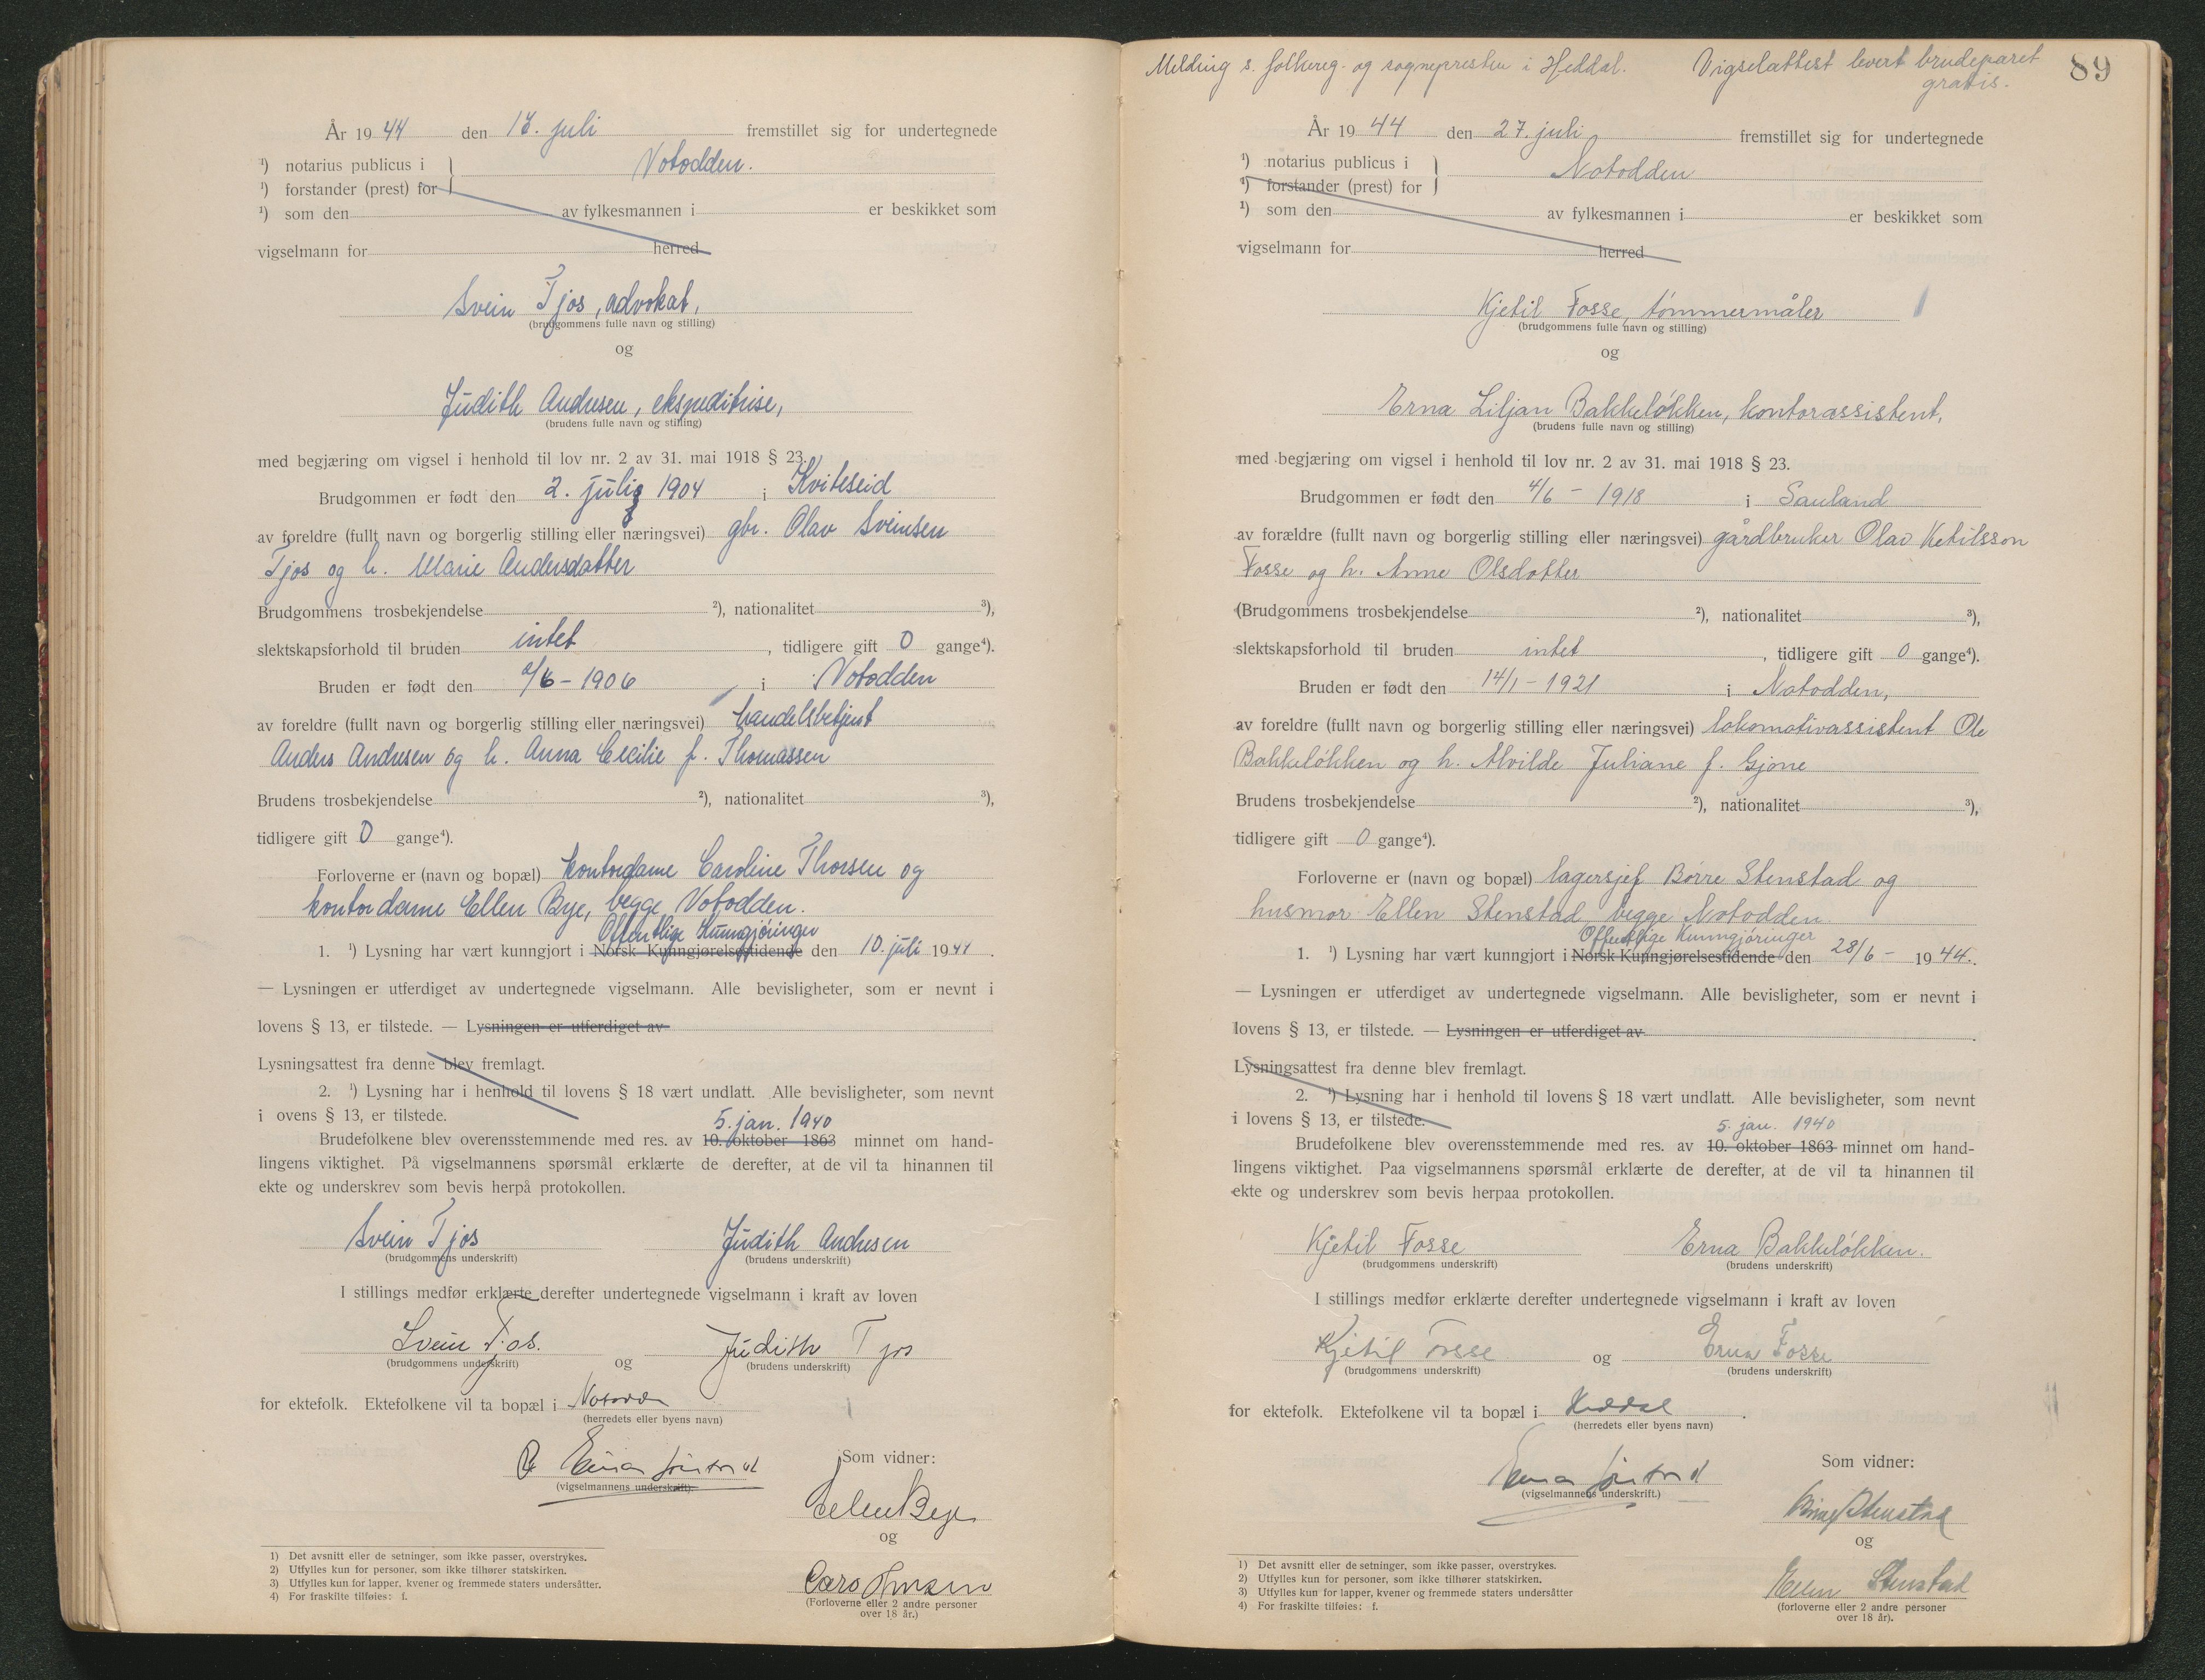 År 1944 den 18. juli fremstillet sig for undertegnede
¹) notarius publicus i } Notodden.
¹) forstander (prest) for
¹) som den av fylkesmannen i er beskikket som
vigselmann for herred
Svein Tjos, advokat,
(brudgommens fulle navn og stilling)
og
Judith Andresen, ekspeditrise,
(brudens fulle navn og stilling)
med begjæring om vigsel i henhold til lov nr. 2 av 31. mai 1918 § 23.
Brudgommen er født den 2. juli 1904 i Kviteseid
av foreldre (fullt navn og borgerlig stilling eller næringsvei) gbr. Olav Sveinsen
Tjos og h. Marie Andersdatter
Brudgommens trosbekjendelse ²), nationalitet ³),
slektskapsforhold til bruden intet, tidligere gift 0 gange⁴).
Bruden er født den /6 - 1906 i Notodden
av foreldre (fullt navn og borgerlig stilling eller næringsvei) handelsbetjent
Anders Andresen og h. Anna Cecilie f. Thomassen
Brudens trosbekjendelse ²), nationalitet ³),
tidligere gift 0 gange⁴).
Forloverne er (navn og bopæl) kontordame Caroline Thorsen og
kontordame Ellen Bye, begge Notodden.
Offentlige Kunngjøringer
1. ¹) Lysning har vært kunngjort i Norsk Kunngjørelsestidende den 10. juli 1944.
— Lysningen er utferdiget av undertegnede vigselmann. Alle bevisligheter, som er nevnt i
lovens § 13, er tilstede. — Lysningen er utferdiget av
Lysningsattest fra denne blev fremlagt.
2. ¹) Lysning har i henhold til lovens § 18 vært undlatt. Alle bevisligheter, som nevnt
i ovens § 13, er tilstede.
5. jan. 1940
Brudefolkene blev overensstemmende med res. av 10. oktober 1863 minnet om hand-
lingens viktighet. På vigselmannens spørsmål erklærte de derefter, at de vil ta hinannen til
ekte og underskrev som bevis herpå protokollen.
Svein Tjos Judith Andresen
(brudgommens underskrift) (brudens underskrift)
I stillings medfør erklærte derefter undertegnede vigselmann i kraft av loven
Svein Tjos. og Judith Tjos
(brudgommens underskrift) (brudens underskrift)
for ektefolk. Ektefolkene vil ta bopæl i Notodden
(herredets eller byens navn)
(vigselmannens underskrift).
Som vidner:
Ellen Bye
og
Caro Thorsen
(Forloverne eller 2 andre personer
over 18 år.)
1) Det avsnitt eller de setninger, som ikke passer, overstrykes.
2) Utfylles kun for personer, som ikke tilhører statskirken.
3) Utfylles kun for lapper, kvener og fremmede staters undersåtter.
4) For fraskilte tilføies: f.
Melding s. folkereg. og sognepresten i Heddal. Vigselattest levert brudeparet
gratis.
89
År 1944 den 27. juli fremstillet sig for undertegnede
¹) notarius publicus i } Notodden
¹) forstander (prest) for
¹) som den av fylkesmannen i er beskikket som
vigselmann for herred
Kjetil Fosse, tømmermåler
(brudgommens fulle navn og stilling)
og
Erna Liljan Bakkeløkken, kontorassistent,
(brudens fulle navn og stilling)
med begjæring om vigsel i henhold til lov nr. 2 av 31. mai 1918 § 23.
Brudgommen er født den 4/6 - 1918 i Sauland
av forældre (fullt navn og borgerlig stilling eller næringsvei) gårdbruker Olav Ketilsson
Fosse og h. Anne Olsdotter
(Brudgommens trosbekjendelse ²), nationalitet ³),
slektskapsforhold til bruden intet, tidligere gift 0 gange⁴).
Bruden er født den 14/1 - 1921 i Notodden,
av foreldre (fullt navn og borgerlig stilling eller næringsvei) lokomotivassistent Ole
Bakkeløkken og h. Alvilde Juliane f. Gjone
Brudens trosbekjendelse ²), nationalitet ³),
tidligere gift 0 gange⁴).
Forloverne er (navn og bopæl) lagersjef Børre Stenstad og
husmor Ellen Stenstad begge Notodden
Offentlige Kunngjøringer
1. ¹) Lysning har vært kunngjort i Norsk Kunngjørelsestidende den 28/6 - 1944.
— Lysningen er utferdiget av undertegnede vigselmann. Alle bevisligheter, som er nevnt i
lovens § 13, er tilstede. — Lysningen er utferdiget av
Lysningsattest fra denne blev fremlagt.
2. ¹) Lysning har i henhold til lovens § 18 vært undlatt. Alle bevisligheter, som nevnt
i lovens § 13, er tilstede.
5. jan. 1940
Brudefolkene blev overensstemmende med res. av 10. oktober 1863 minnet om hand-
lingens viktighet. Paa vigselmannens spørsmål erklærte de derefter, at de vil ta hinannen til
ekte og underskrev som bevis herpaa protokollen.
Kjetil Fosse Erna Bakkeløkken.
(brudgommens underskrift) (brudens underskrift)
I stillings medfør erklærte derefter undertegnede vigselmann i kraft av loven
Kjetil Fosse og Erna Fosse
(brudgommens underskrift) (brudens underskrift)
for ektefolk. Ektefolkene vil ta bopæl i Heddal.
(herredets eller byens navn)
(vigselmannens underskrift.)
Som vidner:
Børre Stenstad
og
Ellen Stenstad
(forloverne eller 2 andre personer
over 18 år).
1) Det avsnitt eller de setninger, som ikke passer, overstrykes.
2) Utfylles kun for personer, som ikke tilhører statskirken.
3) Utfylles kun for lapper, kvener og fremmede staters undersåtter
4) For fraskilte tilføies: f.